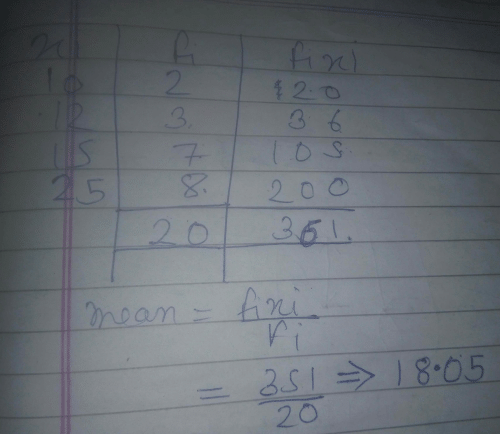 xi fi fixi
10 2 20
12 3. 36
15 7 105
25 8. 200
20 361.
mean = fixi / Fi
= 351 / 20 ⇒ 18.05